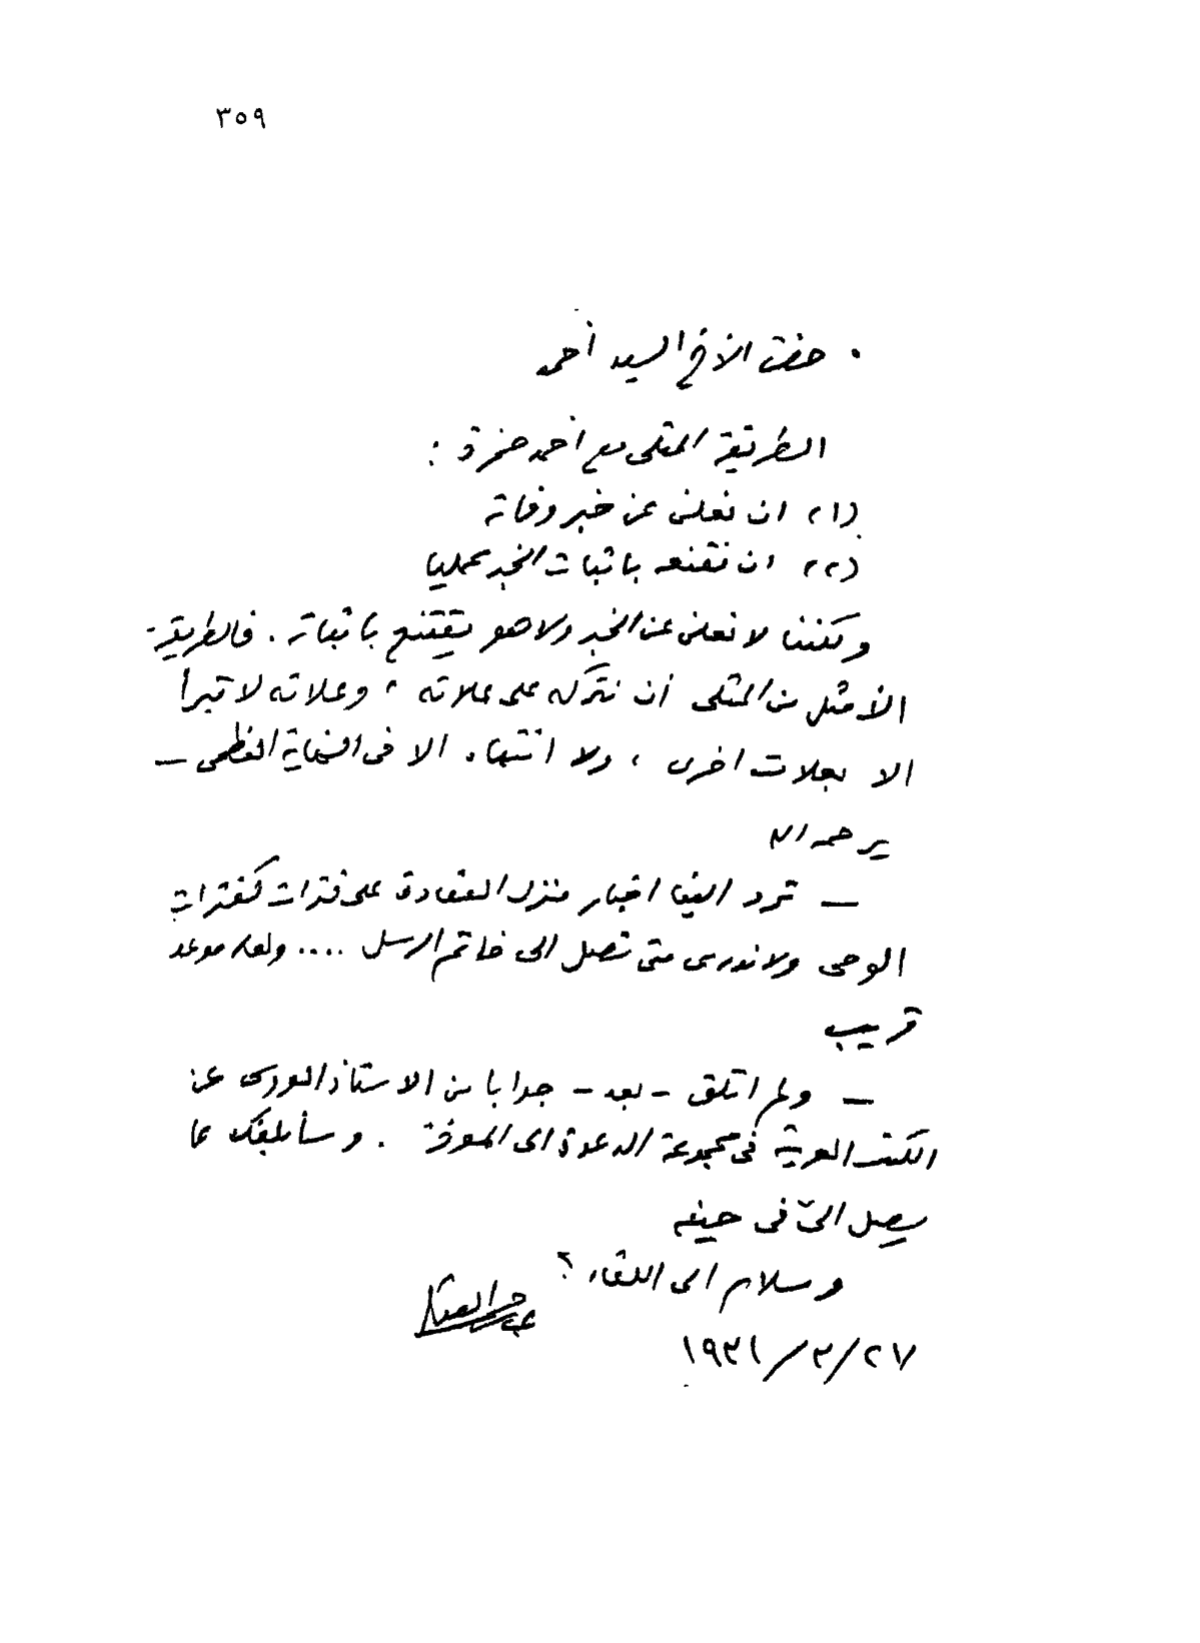 ٣٥٩
حضرة الأخ السيد أحمد
الطريقة المثلى مع أحمد حمزة :
(١) ان نعلن عن خبر وفاته
(٢) ان نقنعه باثبات الخبر عمليا
ولكننا لا نعلن عن الخبر ولا هو يقتنع باثباته . فالطريقة
الأمثل من المثلى أن نتركه على علاته ، وعلاته لا تبرأ
الا بعلات اخرى ، ولا انتهاء الا فى النهاية العظمى —
يرحمه الله
— ترد الينا اخبار منزل العقادة على فترات كفترات
الوحى ولا ندرى متى تصل الى خاتم الرسل .... ولعله موعد
قريب
— ولم اتلق - بعد - جوابا من الاستاذ العودى عن
الكتب العربية فى مجموعة الدعوة الى المعرفة . وسأبلغك بما
يصل الىّ فى حينه
وسلام الى اللقاء ؟
عباس العقاد
٢٧/٣/١٩٣١